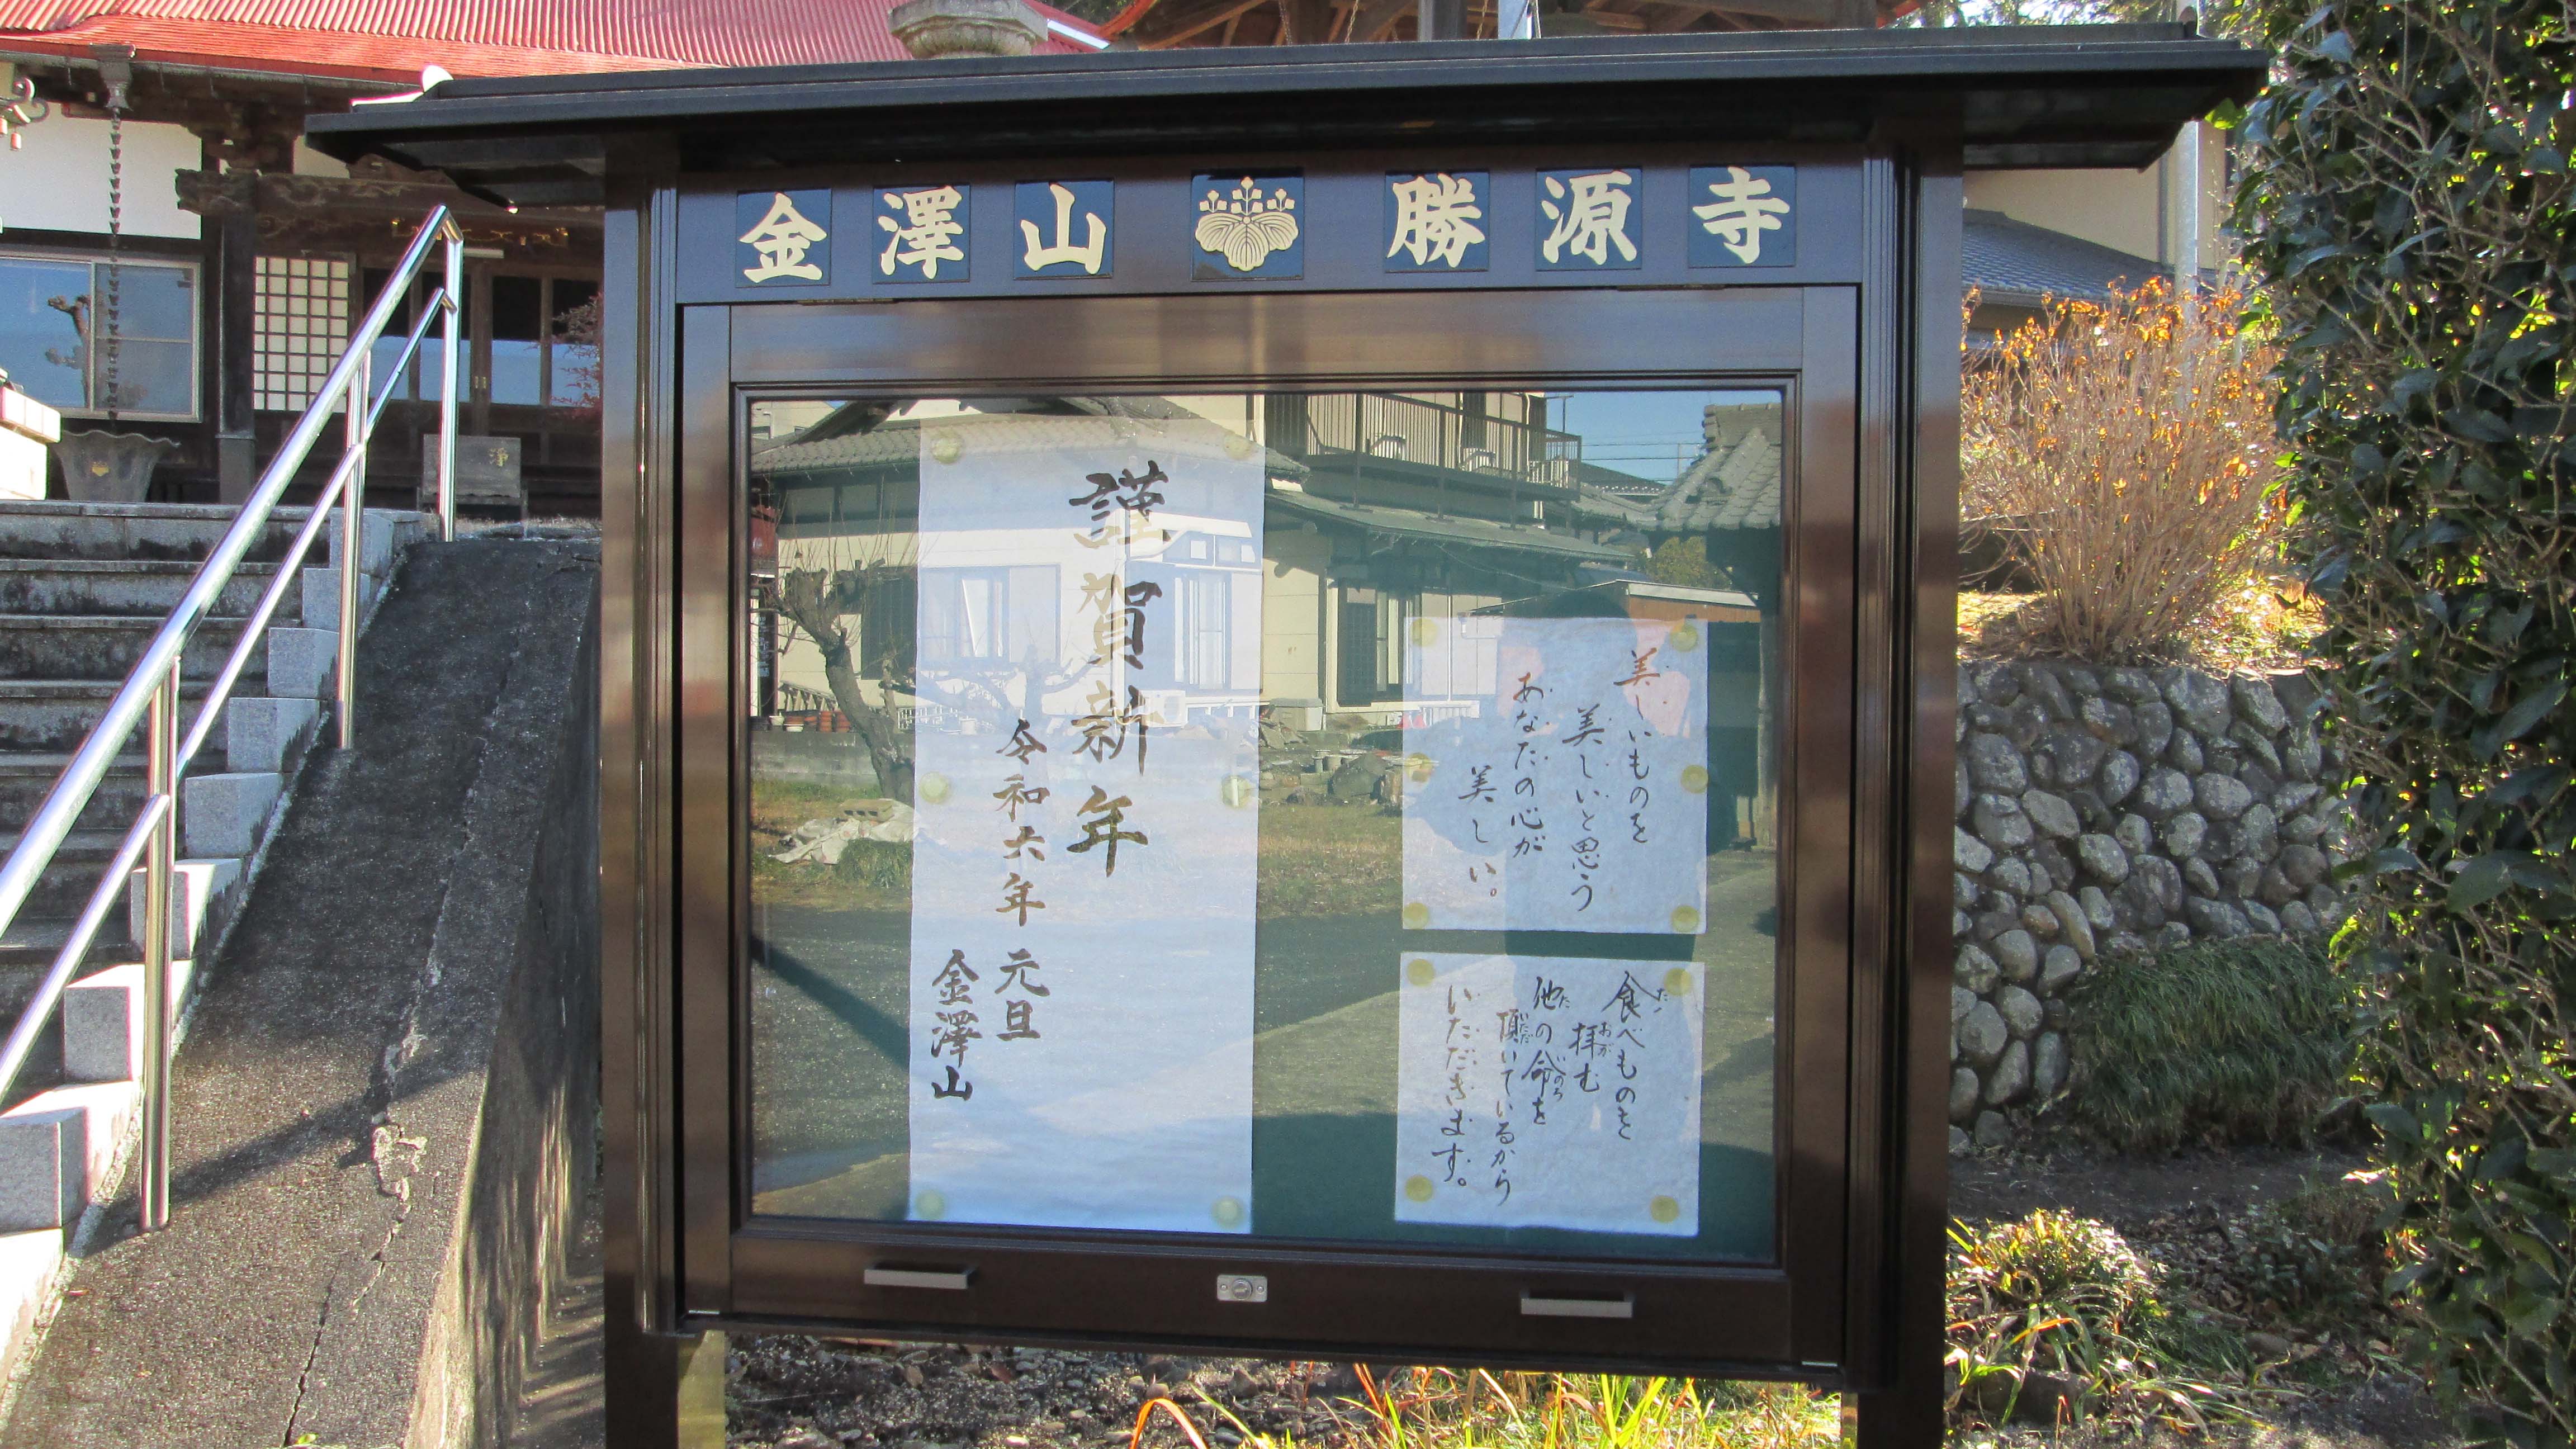 金澤山 勝源寺
美しいものを
美しいと思う
あなたの心が
美しい。
謹賀新年
令和六年 元旦
金澤山
食べものを
拝む
他の命を
頂いているから
いただきます。
浄